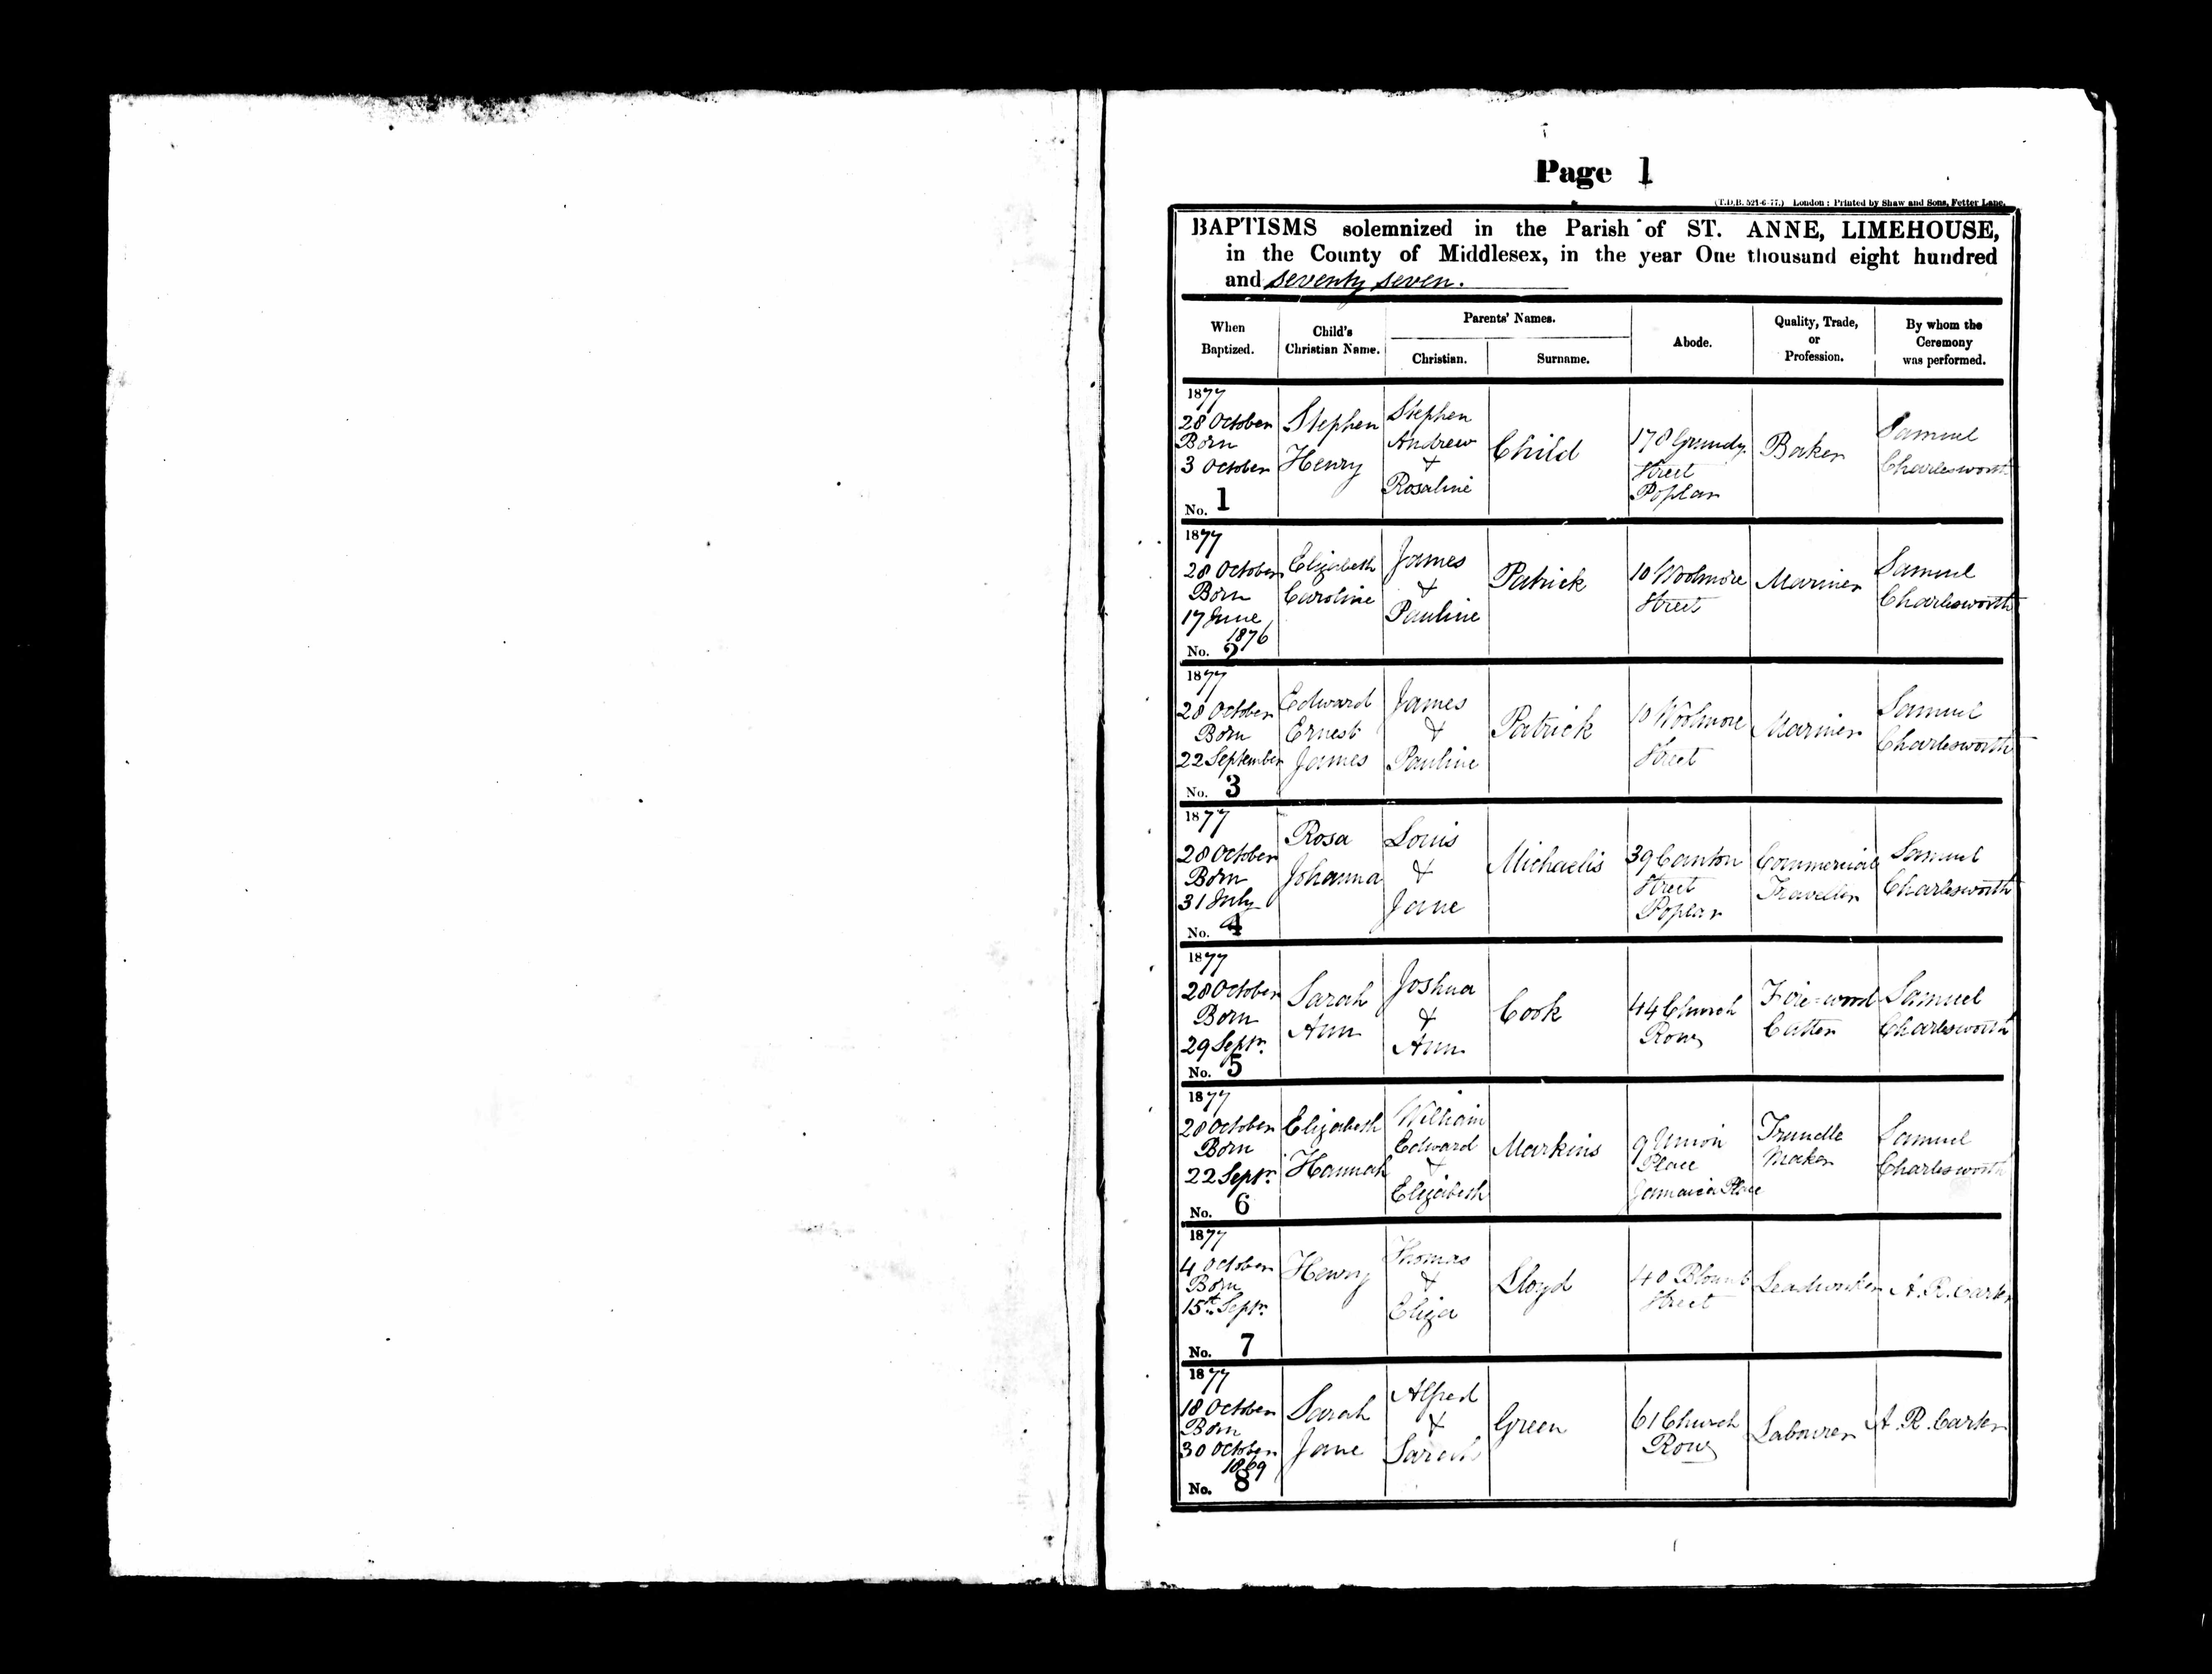 Page 1
(T.D.B. 521-6-77.) London: Printed by Shaw and Sons, Fetter Lane.
BAPTISMS solemnized in the Parish of ST. ANNE, LIMEHOUSE,
in the County of Middlesex, in the year One thousand eight hundred
and seventy seven.
When Baptized. Child's Christian Name. Parents' Names. Christian. Surname. Abode. Quality, Trade, or Profession. By whom the Ceremony was performed.
1877
28 October
Born
3 October
No. 1
Stephen
Henry
Stephen
Andrew
&
Rosaline
Child
178 Grundy
Street
Poplar
Baker
Samuel
Charlesworth
1877
28 October
Born
17 June
1876
No. 2
Elizabeth
Caroline
James
&
Pauline
Patrick
10 Woolmore
Street
Mariner
Samuel
Charlesworth
1877
28 October
Born
22 September
No. 3
Edward
Ernest
James
James
&
Pauline
Patrick
10 Woolmore
Street
Mariner
Samuel
Charlesworth
1877
28 October
Born
31 July
No. 4
Rosa
Johanna
Louis
&
Jane
Michaelis
39 Canton
Street
Poplar
Commercial
Traveller
Samuel
Charlesworth
1877
28 October
Born
29 Septr.
No. 5
Sarah
Ann
Joshua
&
Ann
Cook
44 Church
Row
Fire=wood
Cutter
Samuel
Charlesworth
1877
28 October
Born
22 Septr.
No. 6
Elizabeth
Hannah
William
Edward
&
Elizabeth
Markins
9 Union
Place
Jamaica Place
Trundle
Maker
Samuel
Charlesworth
1877
4 October
Born
15th Septr.
No. 7
Henry
Thomas
&
Eliza
Lloyd
40 Blount
Street
Leadworker
A. R. Carter
1877
18 October
Born
30 October
1869
No. 8
Sarah
Jane
Alfred
&
Sarah
Green
61 Church
Row
Labourer
A. R. Carter